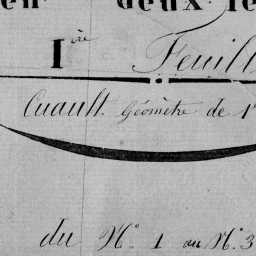 en deux fe
I.re Feuill
Cuault. Géomètre de 1
du N.° 1 au N.° 3